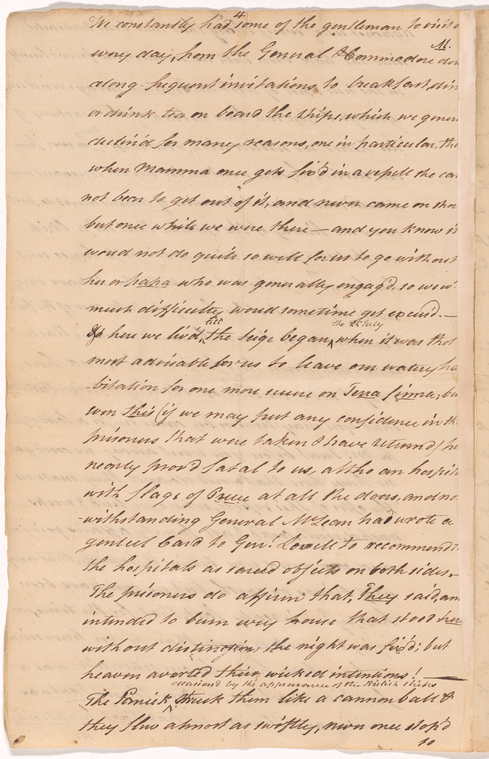 4
We constantly had some of the gentleman to visit u
M.
every day, from the General & Commodore dow
along frequent invitations to breakfast, din
or drink tea on board the ships, which we gener
declin'd for many reasons, one in particular, tha
when Mamma once gets fix'd in a vessell she ca
not bear to get out of it, and never came on sho
but once while we were there — and you know it
would not do quite so well for us to go without
her or papa who was generally engag'd, so we w
much difficulty, would sometime get excus'd. —
till
the 25 July
here we liv'd, the seige began, when it was thot
most adviseable for us to leave our watery ha
bitation for one more secure on Terra firma, bu
even this (if we may put any confidence in th
prisoners that were taken & have return'd) ha
nearly prov'd fatal to us, altho an hospit
with flags of Peace at all the doors, and no
-withstanding General McLean had wrote a
genteel Card to Genl. Lovell to recommend
the hospitals as sacred objects on both sides —
The prisoners do affirm that, They said, an
intended to burn every house that stood here
without distinction, the night was fix'd; but
heaven averted their wicked intentions. —
occasiond by the appearance of the British ships
The Panick, struck them like a cannon ball &
they flew almost as swiftly, never once stop'd
to